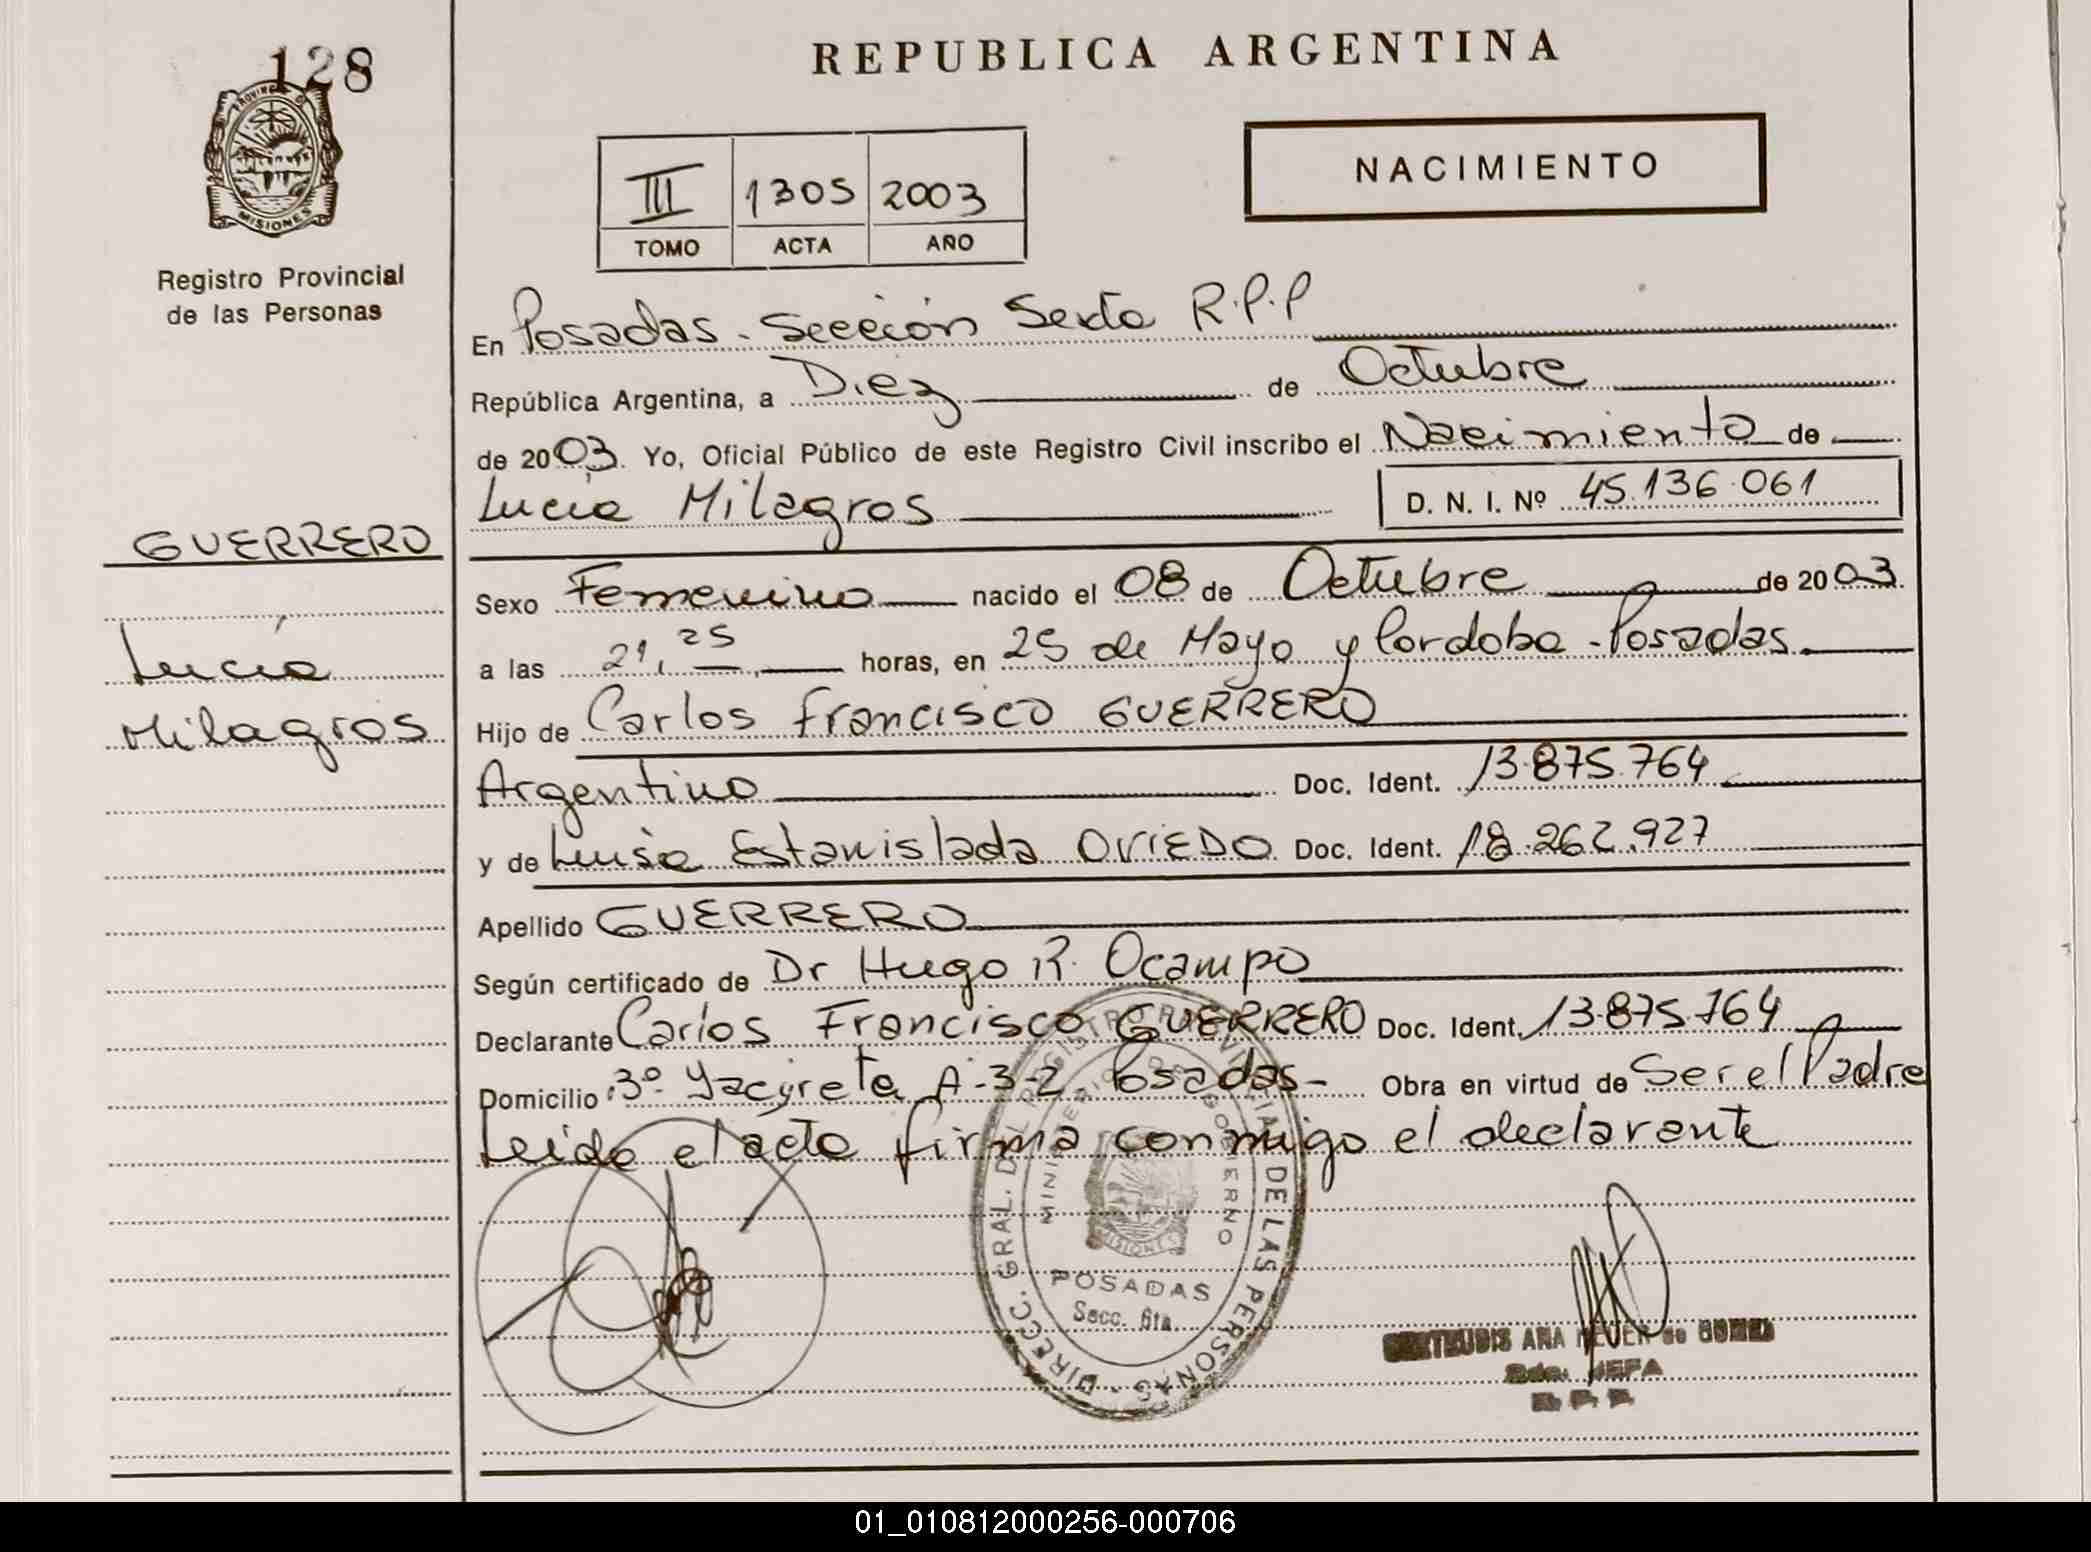 128
PROVINCIA DE
MISIONES
Registro Provincial
de las Personas
GUERRERO
Lucía
Milagros
REPUBLICA ARGENTINA
III 1305 2003
TOMO ACTA AÑO
NACIMIENTO
En Posadas - Sección Sexta R.P.P
República Argentina, a Diez de Octubre
de 2003. Yo, Oficial Público de este Registro Civil inscribo el Nacimiento de
Lucía Milagros D. N. I. Nº 45.136.061
Sexo Femenino nacido el 08 de Octubre de 2003.
a las 21,25 horas, en 25 de Mayo y Cordoba - Posadas.
Hijo de Carlos Francisco GUERRERO
Argentino Doc. Ident. 13.875.764
y de Luisa Estanislada OVIEDO Doc. Ident. 18.262.927
Apellido GUERRERO
Según certificado de Dr Hugo R. Ocampo
Declarante Carlos Francisco GUERRERO Doc. Ident. 13.875.764
Domicilio 3º Yacyreta A-3-2 Posadas- Obra en virtud de Ser el Padre
Leida el acta firma conmigo el declarante
DIRECC. GRAL. DEL REGISTRO PROVINCIAL DE LAS PERSONAS -
MINISTERIO DE GOBIERNO
MISIONES
POSADAS
Secc. 6ta.
ANA
de
JEFA
R. P. P.
01_010812000256-000706